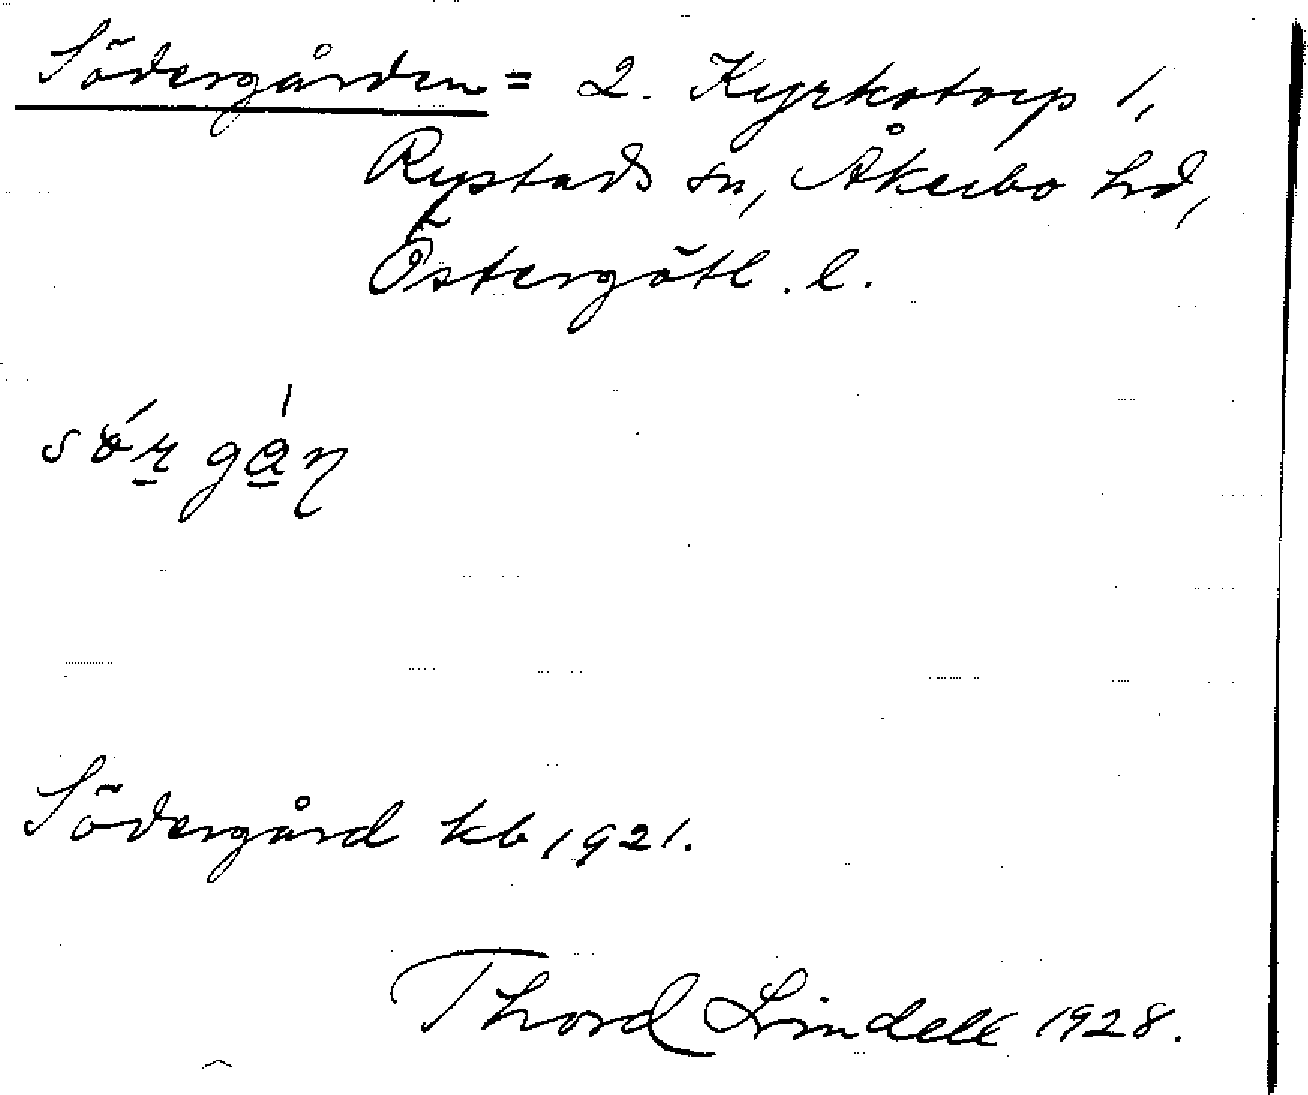 Södergården = 2. Kyrkotorp 1,
Rystads sn, Åkerbo hd,
Östergötl. l.
Södergård kb 1921.
Thord Lindell 1928.